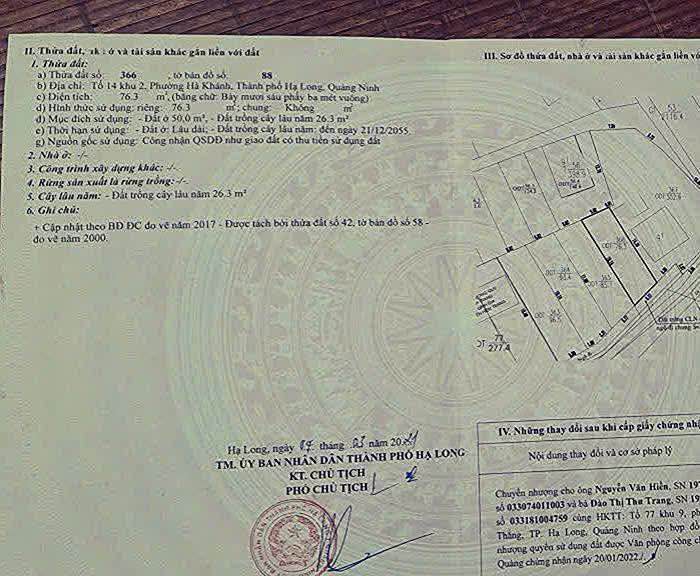 II. Thửa đất, nhà ở và tài sản khác gắn liền với đất
1. Thửa đất:
a) Thửa đất số: 366 , tờ bản đồ số: 88
b) Địa chỉ: Tổ 14 khu 2, Phường Hà Khánh, Thành phố Hạ Long, Quảng Ninh
c) Diện tích: 76.3 m², (bằng chữ: Bảy mươi sáu phẩy ba mét vuông)
d) Hình thức sử dụng: riêng: 76.3 m²; chung: Không m²
đ) Mục đích sử dụng: - Đất ở 50,0 m², - Đất trồng cây lâu năm 26.3 m²
e) Thời hạn sử dụng: - Đất ở: Lâu dài; - Đất trồng cây lâu năm: đến ngày 21/12/2055
g) Nguồn gốc sử dụng: Công nhận QSDĐ như giao đất có thu tiền sử dụng đất
2. Nhà ở: -/-
3. Công trình xây dựng khác: -/-
4. Rừng sản xuất là rừng trồng: -/-
5. Cây lâu năm: - Đất trồng cây lâu năm 26.3 m²
6. Ghi chú:
+ Cập nhật theo BĐ ĐC đo vẽ năm 2017 - Được tách bởi thửa đất số 42, tờ bản đồ số 58 -
đo vẽ năm 2000.
Hạ Long, ngày 07 tháng 03 năm 2021
TM. ỦY BAN NHÂN DÂN THÀNH PHỐ HẠ LONG
KT. CHỦ TỊCH
PHÓ CHỦ TỊCH
III. Sơ đồ thửa đất, nhà ở và tài sản khác gắn liền vớ
53
2116.4
367
ODT
366
76.3
ODT
365
ODT
364
ODT
363
77
277.4
61
Đất trồng CLN
IV. Những thay đổi sau khi cấp giấy chứng nhậ
Nội dung thay đổi và cơ sở pháp lý
Chuyển nhượng cho ông Nguyễn Văn Hiền, SN 197
số 033074011003 và bà Đào Thị Thu Trang, SN 19
số 033181004759 cùng HKTT: Tổ 77 khu 9, ph
Thắng, TP. Hạ Long, Quảng Ninh theo hợp đồ
nhượng quyền sử dụng đất được Văn phòng công ch
Quảng chứng nhận ngày 20/01/2022./.